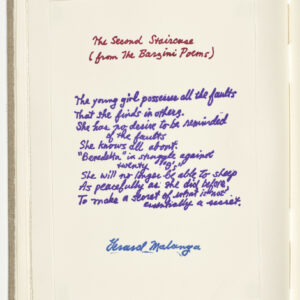 The Second Staircase
(from The Barzini Poems)
The young girl possesses all the faults
That she finds in others.
She has no desire to be reminded
of the faults
She knows all about.
"Benedetta" in struggle against
twenty
She will no longer be able to sleep
As peacefully as she did before
To make a secret of what is not
essentially a secret.
Gerard Malanga